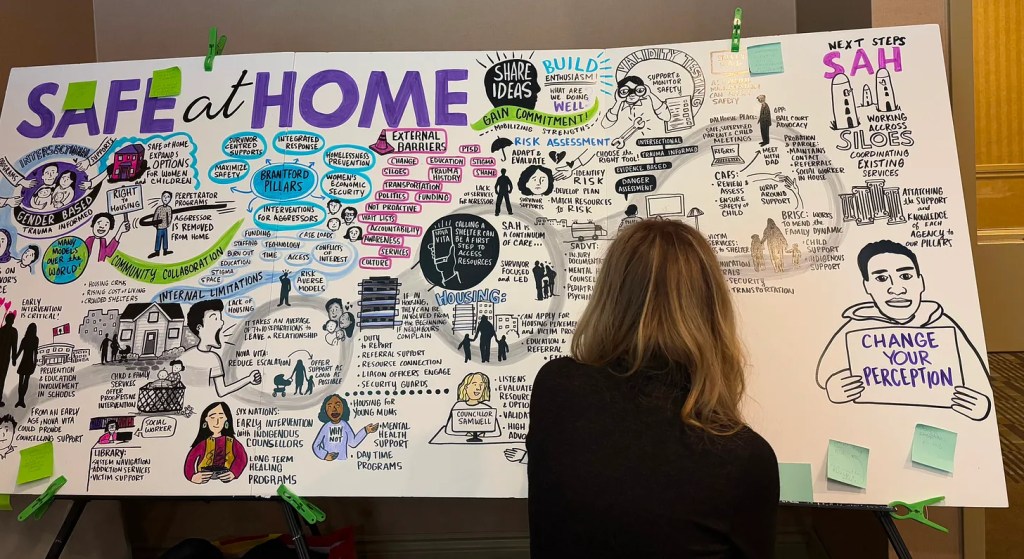 SAFE at HOME
DIVERSE
SUPPORT
GENDER BASED
TRAUMA INFORMED
SAFE at HOME
EXPANDS
OPTIONS
FOR WOMEN
& CHILDREN!
RIGHT
to
HOUSING
PERPETRATOR
PROGRAMS
AGGRESSOR
IS REMOVED
FROM HOME
MANY
MODELS
OVER the
WORLD!
COMMUNITY COLLABORATION
HOUSING CRISIS
RISING COST of LIVING
CROWDED SHELTERS
SURVIVOR
CENTRED
SUPPORTS
INTEGRATED
RESPONSE
MAXIMIZE
SAFETY
BRANTFORD
PILLARS
HOMELESSNESS
PREVENTION
WOMEN'S
ECONOMIC
SECURITY
INTERVENTIONS
for AGGRESSORS
INTERNAL LIMITATIONS
FUNDING
CASE LOADS
STAFFING
TECHNOLOGY
CONFLICTS
of
INTEREST
BURN OUT
TIME
ACCESS
EDUCATION
STIGMA
SPACE
RISK
AVERSE
MODELS
EXTERNAL
BARRIERS
PTSD
CHANGE
EDUCATION
STIGMA
SILOES
TRAUMA
HISTORY
SHAME
TRANSPORTATION
POLITICS
FUNDING
NOT PROACTIVE
WAIT LISTS
ACCOUNTABILITY
AWARENESS
SERVICES
CULTURE
LACK of
SERVICES
RISK
SURVIVOR
SUPPORTS
NOVA
VITA:
CALLING A
SHELTER CAN
BE A FIRST
STEP TO
ACCESS
RESOURCES
SHARE
IDEAS
BUILD
ENTHUSIASM!
WHAT ARE
WE DOING
WELL
GAIN COMMITMENT!
MOBILIZING STRENGTHS
VALIDITY TESTING
SUPPORT &
MONITOR
SAFETY
RISK ASSESSMENT
ADAPT &
EVALUATE
CHOOSE the
RIGHT TOOL!
IDENTIFY
RISK
DEVELOP PLAN
MATCH RESOURCES
to RISK
INTERSECTIONAL
TRAUMA INFORMED
EVIDENCE BASED
DANGER
ASSESSMENT
S.A.H. is
A CONTINUUM
OF CARE...
SURVIVOR
FOCUSED
and LED
SADVT:
INJURY
MENTAL
SAFELY
DALHOUSE PLACE:
SAFE, SUPERVISED
PARENT & CHILD
MEETINGS
RIGHTS
MEET with
CAFS:
REVIEW &
ASSESS
ENSURE
SAFETY of
CHILD
WRAP
AROUND
SUPPORT
BAIL COURT
ADVOCACY
PROBATION
& PAROLE
MAINTAINS
CONTACT
REFERRALS
SOCIAL WORKER
IN HOUSE
VICTIM
SERVICES:
SECURITY
TRANSPORTATION
BRISC: WORKS
to MEND
FAMILY DYNAMIC
CHILD
SUPPORT
INDIGENOUS
SUPPORT
NEXT STEPS
SAH
WORKING
ACROSS
SILOES
COORDINATING
EXISTING
SERVICES
ATTACHING
the SUPPORT
and
KNOWLEDGE
of EACH
AGENCY to
OUR PILLARS.
CHANGE
YOUR
PERCEPTION
EARLY
INTERVENTION
IS CRITICAL!
PREVENTION
& EDUCATION
INVOLVEMENT
IN SCHOOLS
CHILD & FAMILY
SERVICES OFFER
PROGRESSIVE
INTERVENTION
LACK of
HOUSING
IT TAKES AN AVERAGE
of 7 to 12 SEPARATIONS to
LEAVE A RELATIONSHIP
NOVA VITA:
REDUCE ESCALATION
OFFER
SUPPORT
AS LONG
AS
POSSIBLE
HOUSING:
IF IN
HOUSING,
THEY CAN BE
INVOLVED FROM
the BEGINNING
IF NEIGHBOURS
COMPLAIN
DUTY
to REPORT
REFERRAL SUPPORT
RESOURCE CONNECTION
LIAISON OFFICERS ENGAGE
SECURITY GUARDS
CAN APPLY for
HOUSING
and VICTIM
EDUCATION &
REFERRAL
FROM AN EARLY
AGE NOVA VITA
COULD PROVIDE
COUNSELLING SUPPORT
SOCIAL
WORKER
LIBRARY:
SYSTEM NAVIGATION
ADDICTION SERVICES
VICTIM SUPPORT
SIX NATIONS:
EARLY INTERVENTION
WITH INDIGENOUS
COUNSELLORS
LONG TERM
HEALING
PROGRAMS
WHY
NOT
HOUSING FOR
YOUNG MUMS
MENTAL
HEALTH
SUPPORT
DAY TIME
PROGRAMS
COUNCILLOR
SAMWELL
LISTENS
EVALUATE
HIGH